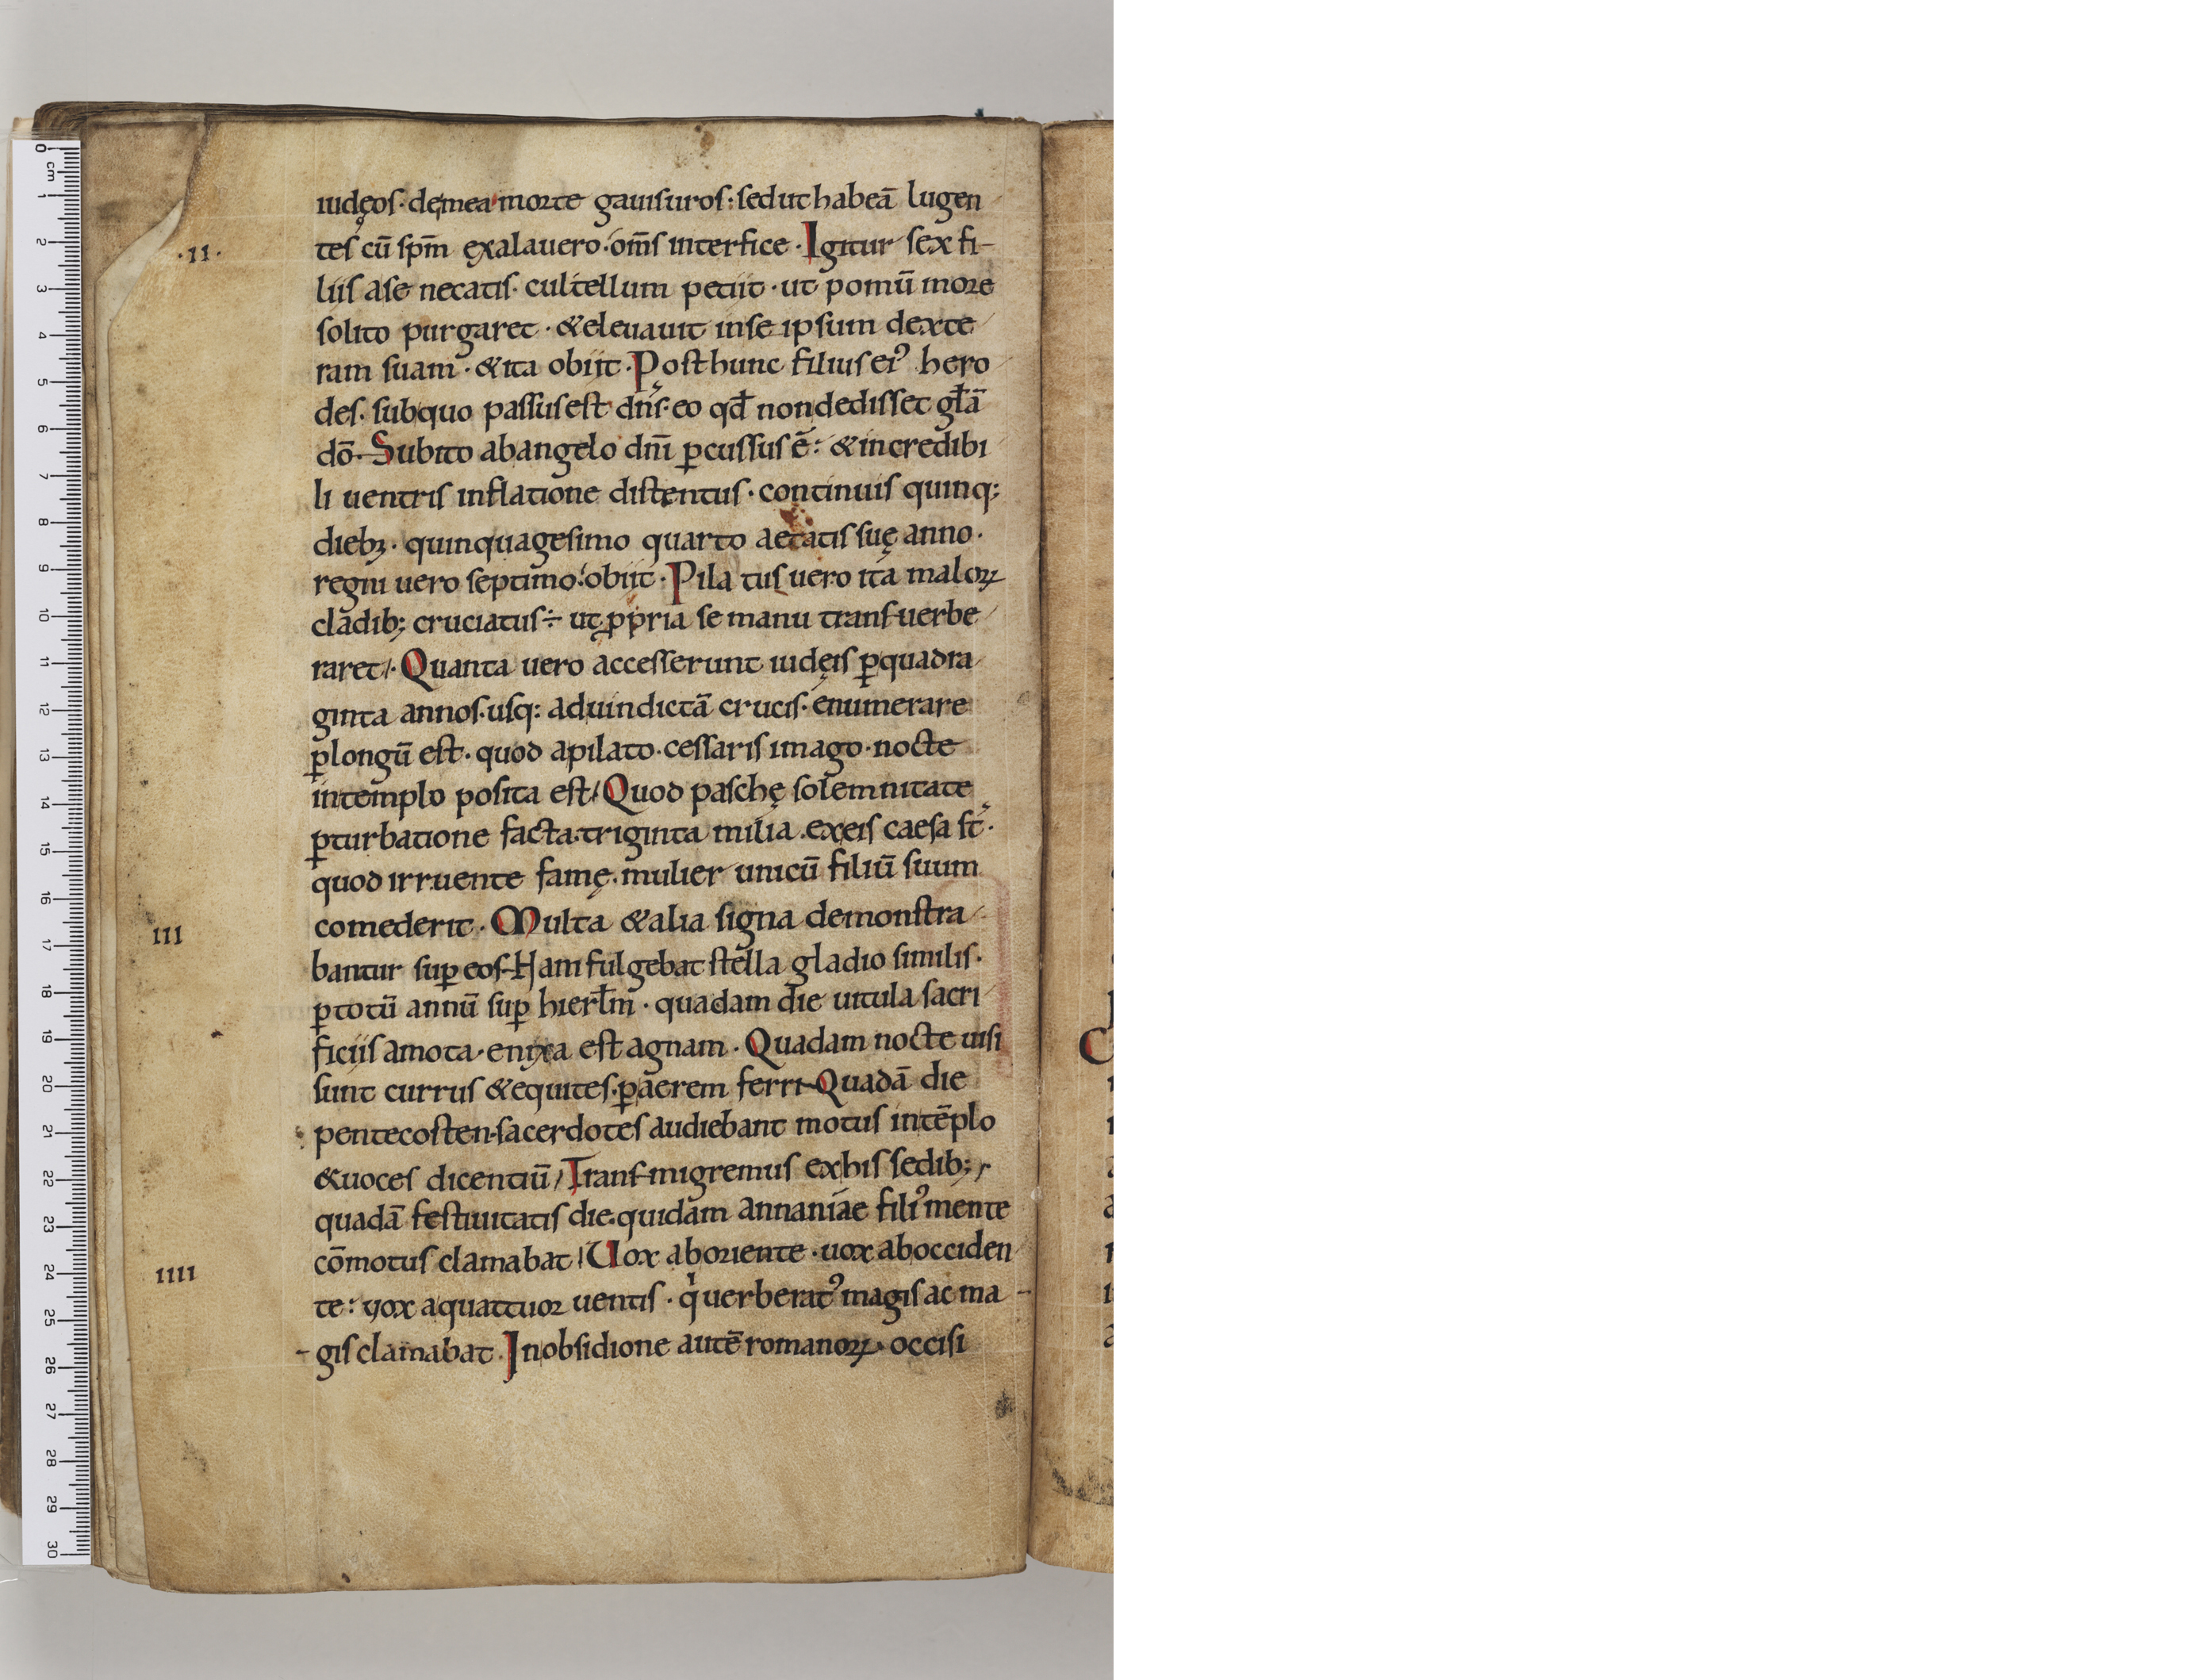 iudęos· de mea morte gauisuros: sed ut habeā lugen
·II· tes cū spm̄ exalauero· om̄s interfice· Igitur sex fi-
liis a se necatis· cultellum petiit· ut pomū more
solito purgaret· & eleuauit in se ipsum dexte
ram suam· & ita obiit· Post hunc filius eiꝰ hero
des· sub quo passus est dn̄s· eo qđ non dedisset gl̄ā
dō· Subito ab angelo dn̄i ꝑcussus ē: & incredibi
li uentris inflatione distentus· continuis quinq;
diebꝫ· quinquagesimo quarto aetatis suę anno·
regni uero septimo: obiit· Pilatus uero ita maloꝝ
cladib; cruciatus÷ ut ꝓpria se manu transuerbe
raret/· Quanta uero accesserunt iudęis ꝑ quadra
ginta annos· usq: ad uindictā crucis· enumerare
ꝑlongū est· quod a pilato· cessaris imago· nocte
in templo posita est/ Quod paschę solemnitate
ꝑturbatione facta· triginta milia· ex eis caesa st̄·
quod irruente famę· mulier unicū filiū suum
III comederit· Multa & alia signa demonstra
bantur suꝑ eos· Nam fulgebat stella gladio similis·
ꝑ totū annū suꝑ hierl̄m· quadam die uitula sacri
ficiis amota· enixa est agnam· Quadam nocte uisi
sunt currus & equites· ꝑ aerem ferri· Quadā die
pentecosten· sacerdotes audiebant motus in tēplo
& uoces dicentiū/ Transmigremus ex his sedib;,
quadā festiuitatis die· quidam annaniae filiꝰ mente
IIII cōmotus clamabat/ Uox ab oriente· uox ab occiden
te: uox a quattuor uentis· qͥ uerberatꝰ magis ac ma-
-gis clamabat· In obsidione autē romanoꝝ· occisi